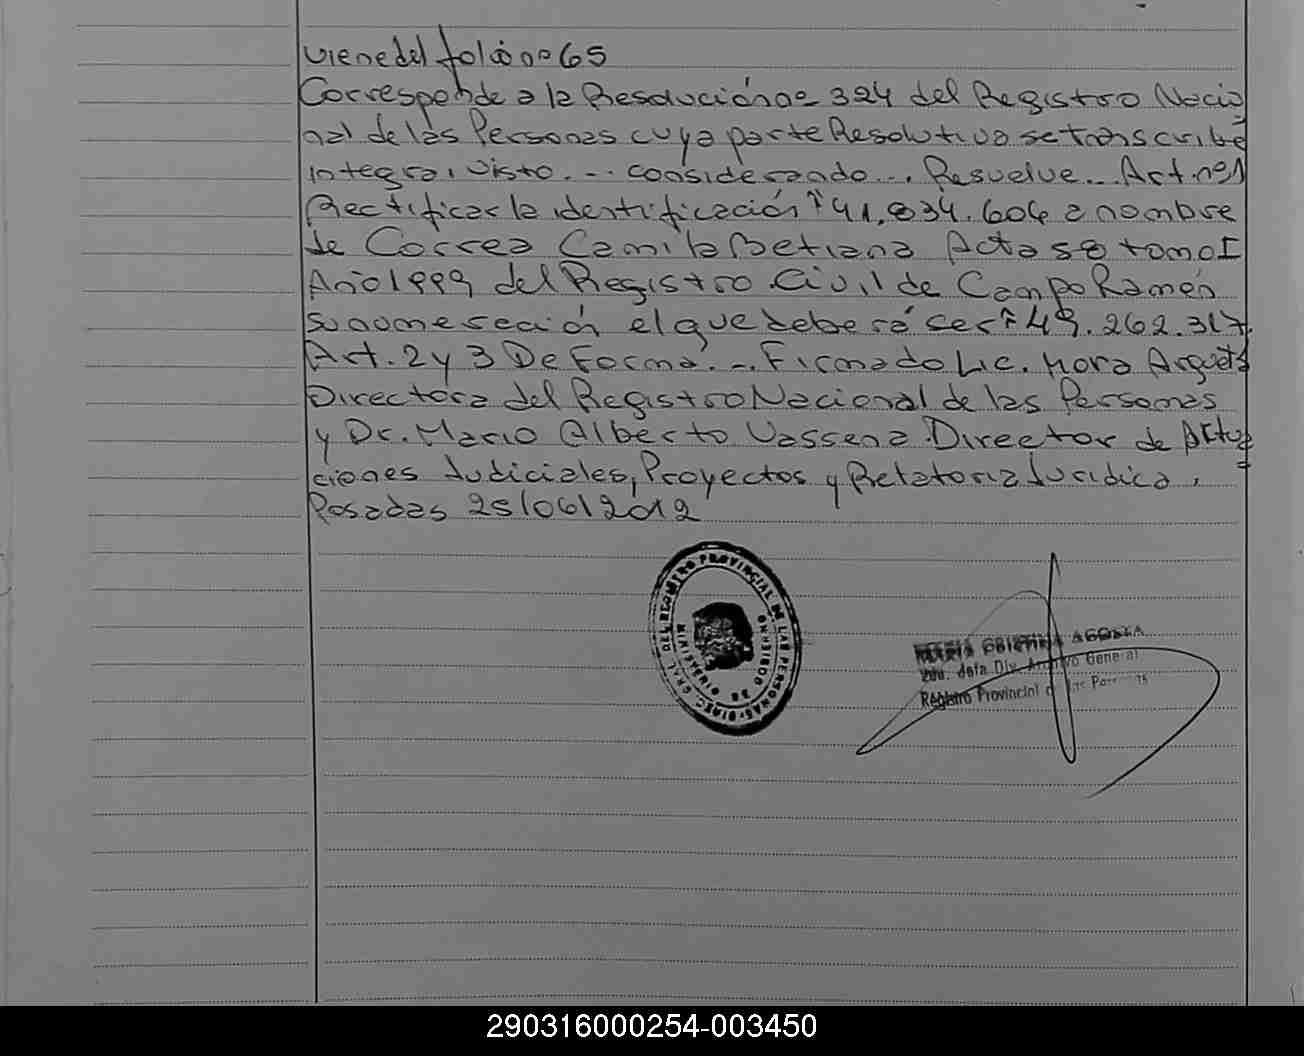 viene del folio nº 65
Corresponde a la Resolución nº 324 del Registro Nacio
nal de las Personas cuya parte Resolutiva se transcribe
integra. visto. ... considerando... Resuelve... Art. nº1
Rectificar la identificación nº 41.834.604 a nombre
de Correa Camila Betiana Acta 58 tomo I
Año 1999 del Registro Civil de Campo Ramón
su nomeración el que deberá ser nº 49.262.317.
Art. 2 y 3 De Forma. ... Firmado Lic. Mora Arqueta
Directora del Registro Nacional de las Personas
y Dr. Mario Alberto Vassena Director de Actua
ciones Judiciales, Proyectos y Relatoria Juridica.
Posadas 25/06/2012
DIREC. GRAL. DEL REGISTRO PROVINCIAL DE LAS PERSONAS
MINISTERIO DE GOBIERNO
MARIA CRISTINA ACOSTA
2da. Jefa Div. Archivo General
Registro Provincial de las Personas
290316000254-003450